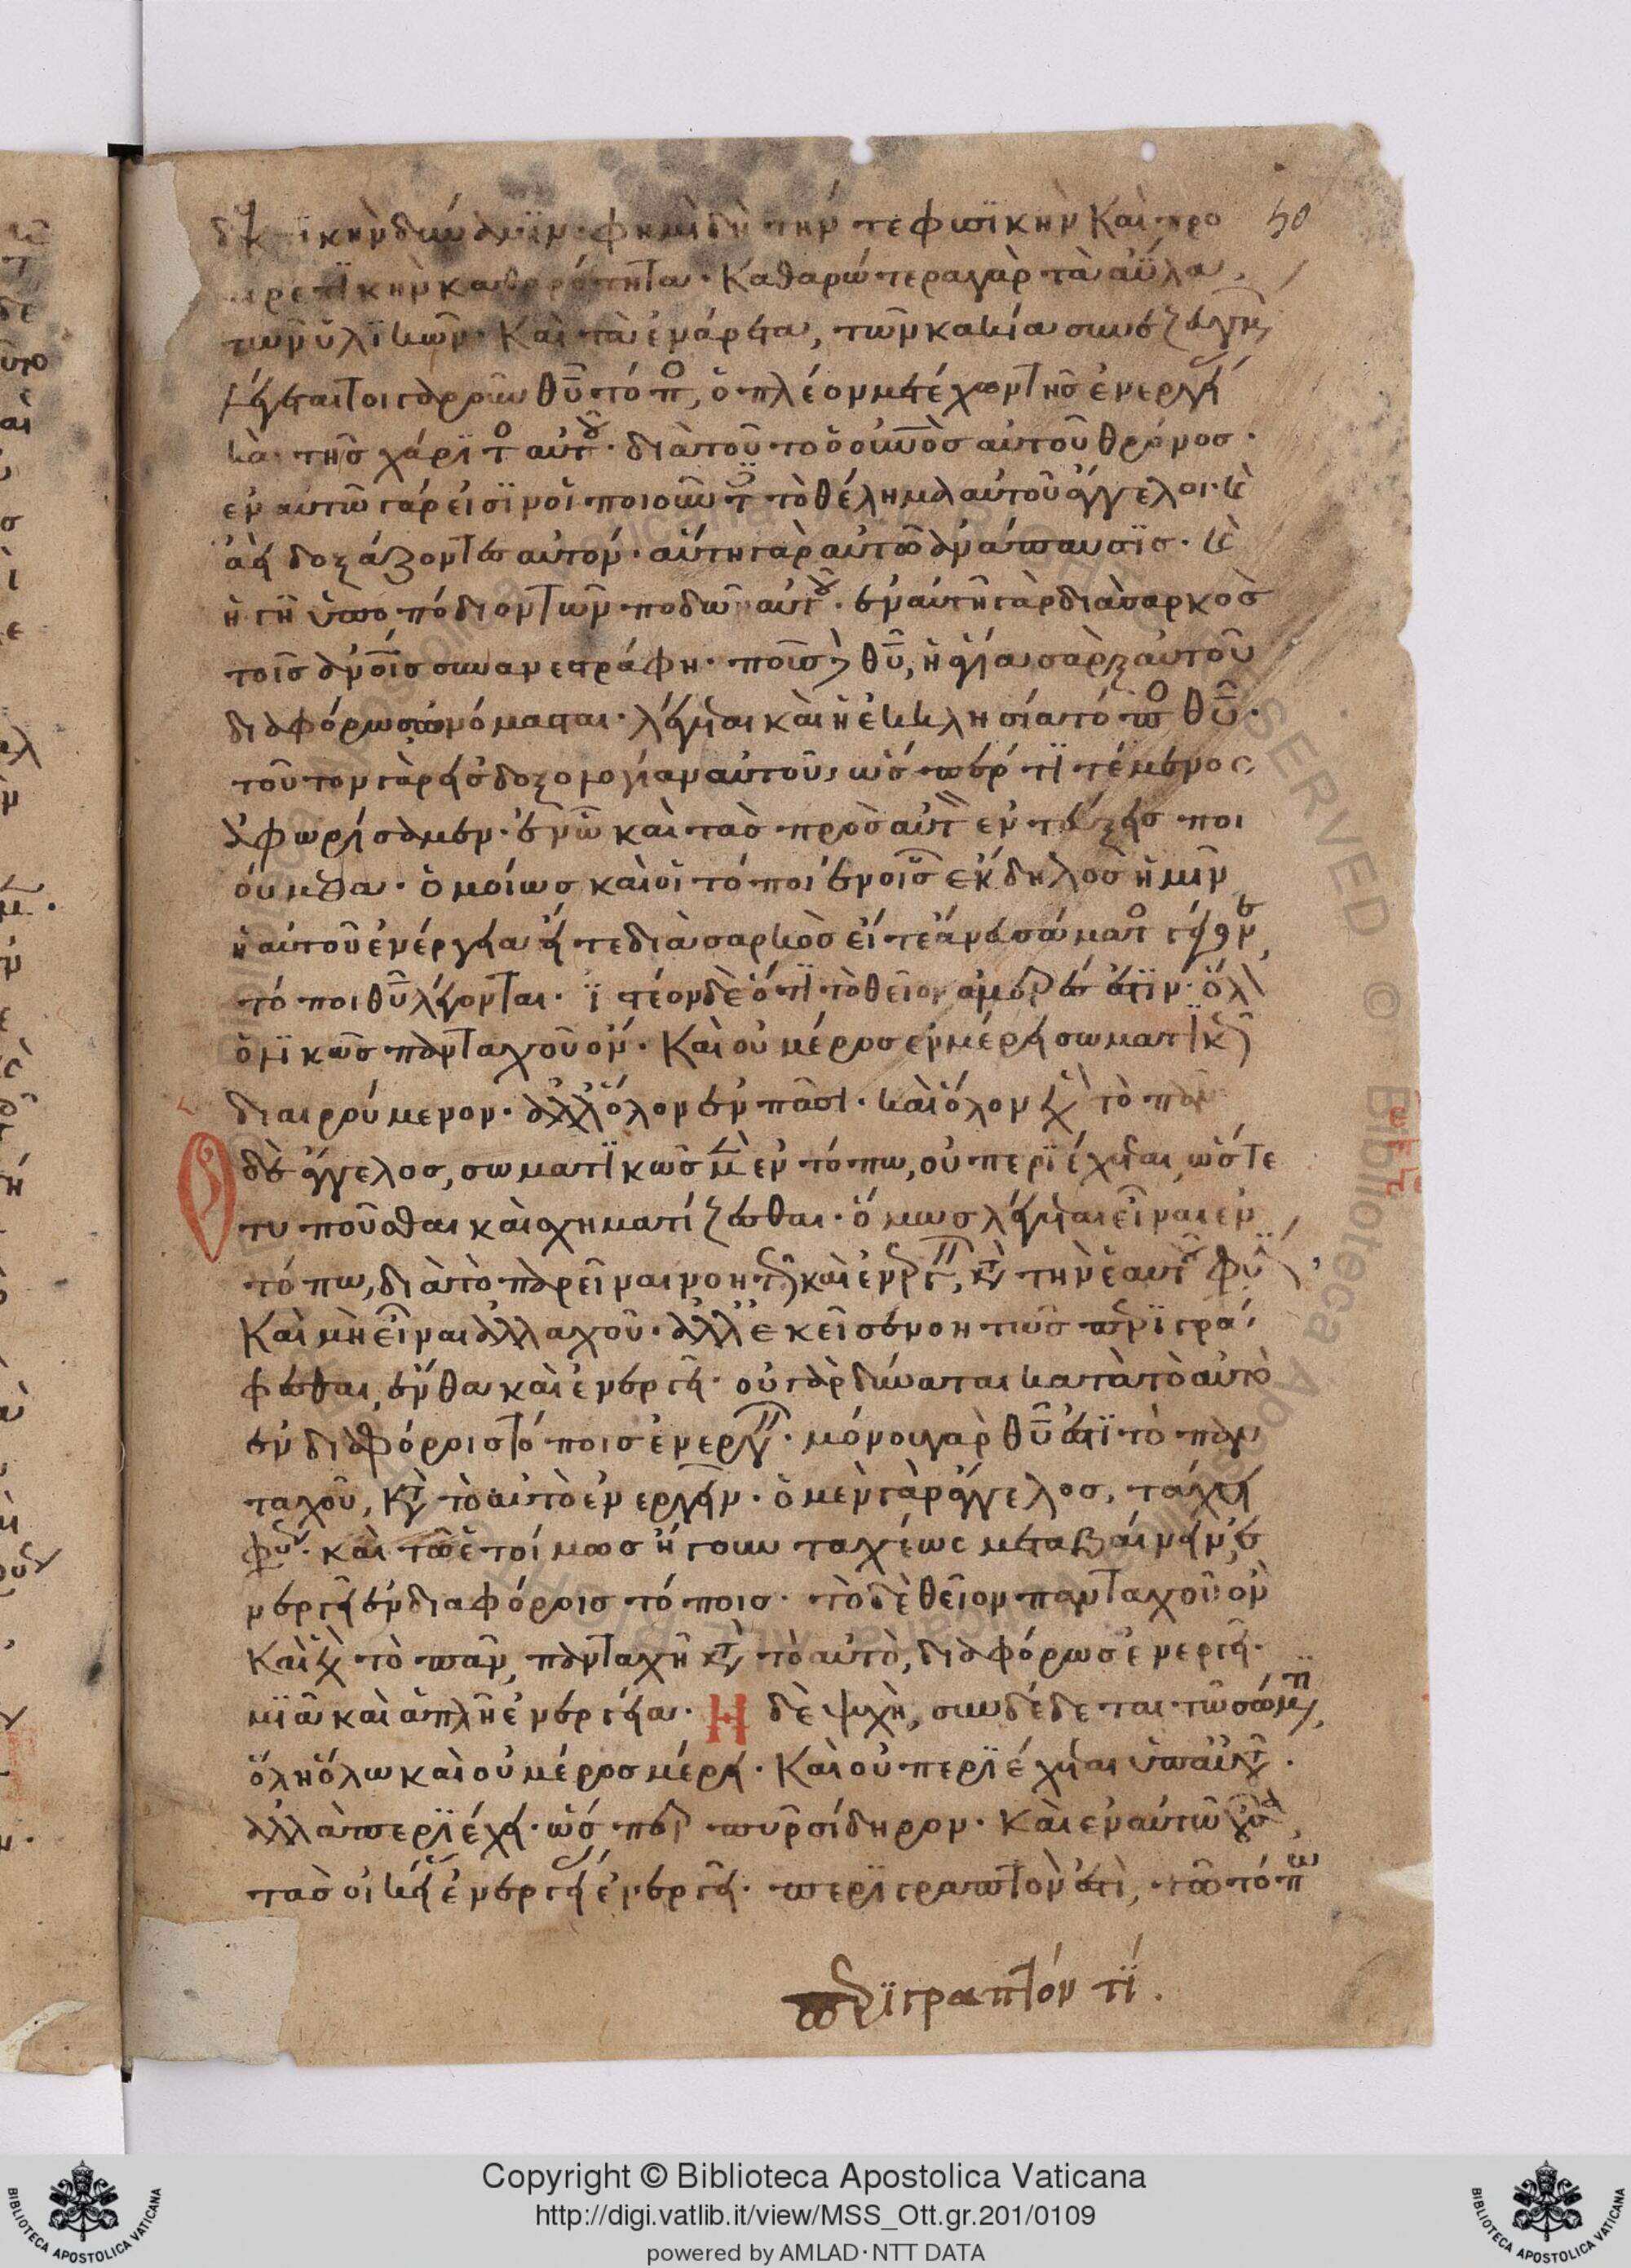 δεκτικὴν δύναμϊν· φημὶ δὴ τήν τε φυσϊκὴν Καὶ προ
αιρετϊκὴν καθαρότητα· Καθαρώτερα γὰρ τὰ ἀΰλα,
τῶν ὑλϊκῶν· Καὶ τὰ ἐνάρετα, τῶν κακία συνεζευγμ
λέγεται τοι γαροῦν θῦ τόπο, ὁ πλέον μετέχων τῆς ἐνεργεί
κὰ τῆς χάρϊτο αὐτοῦ· διὰ τοῦτο ὁ οὐνος αὐτοῦ θρόνος·
ἐν αὐτῶ γάρ εἰσϊν οἱ ποιοῦντ τὸ θέλημα αὐτοῦ ἄγγελοι· κὲ
ἀεὶ δοξάζοντες αὐτόν· αὕτη γὰρ αὐτῶ ἀνάπαυσϊς· κὲ
ἡ γῆ ὑποπόδιον τῶν ποδῶν αὐτοῦ· ἐν αὐτῆ γὰρ διὰ σαρκὸς
τοῖς ἀνοις συνανεστράφη· ποῦς δὲ θῦ, ἡ ἁγία σὰρξ αὐτοῦ
διαφόρως ὠνόμασται· λέγεται καὶ ἡ ἐκκλησία τόπο θῦ·
τοῦτον γὰρ εἰς δοξολογίαν αὐτοῦ, ὥσπερ τϊ τέμενος
ἀφωρίσαμεν· ἐν ὧ καὶ τὰς πρὸς αὐτ ἐντεύξεις ποι
ούμεθα· ὁμοίως καὶ οἱ τόποι ἐν οἷς ἔκδηλος ἡμῖν
ἡ αὐτοῦ ἐνέργεια εἴτε διὰ σαρκὸς εἴτε ἄνευ σώματο γέγονεν,
τόποι θῦ λέγονται· ϊστέον δὲ ὅτϊ τὸ θεῖον ἀμερές ἐστϊν· ὅλ
ὁλϊκῶς πανταχοῦ ὄν· Καὶ οὐ μέρος ἐν μέρει σωματϊκῶς
διαιρούμενον· ἀλλὅλον ἐν πᾶσι· καὶ ὅλον ὑπὲρ τὸ πᾶν
Ὁ δὲ ἄγγελος, σωματϊκῶς μὲν ἐν τόπω, οὐ περϊέχεται, ὥστε
τυποῦσθαι καὶ σχηματίζεσθαι· ὅμως λέγεται εἶναι ἐν
τόπω, διὰ τὸ παρεῖναι νοητῶς καὶ ἐνεργεῖν, κατὰ τὴν ἑαυτοῦ φύσϊν,
Καὶ μὴ εἶναι ἀλλαχοῦ· ἀλλἐκεῖσε νοητῶς περϊγρά
φεσθαι, ἔνθα καὶ ἐνεργεῖ· οὐ γὰρ δύναται κατὰ τὸ αὐτὸ
ἐν διαφόροις τόποις ἐνεργεῖν· μόνου γὰρ θῦ ἐστϊ τὸ παν
ταχοῦ, κατὰ τὸ αὐτὸ ἐνεργεῖν· ὁ μὲν γὰρ ἄγγελος, τάχει
φύσ· καὶ τῶ ἑτοίμως ἤγουν ταχέως μεταβαίνειν, ἐ
νεργεῖ ἐν διαφόροις τόποις· τὸ δὲ θεῖον πανταχοῦ ὂν
Καὶ ὑπὲρ τὸ πᾶν, πανταχῆ κατὰ τὸ αὐτὸ, διαφόρως ἐνεργεῖ·
μϊᾶ καὶ ἁπλῆ ἐνεργεία· Η δὲ ψυχὴ, συνδέδεται τῶ σώματϊ,
ὅλη ὅλω καὶ οὐ μέρος μέρει· Καὶ οὐ περϊέχεται ὑπ αὐτοῦ·
ἀλλὰ περϊέχει· ὥσπερ πῦρ σίδηρον· Καὶ ἐν αὐτῶ οὖσα,
τὰς οἰκεί ἐνεργεί ἐνεργεῖ· περϊγραπτὸν ἐστὶ, τῶ τόπω
περϊγραπτόν τϊ.
Copyright © Biblioteca Apostolica Vaticana
http://digi.vatlib.it/view/MSS_Ott.gr.201/0109
powered by AMLAD·NTT DATA